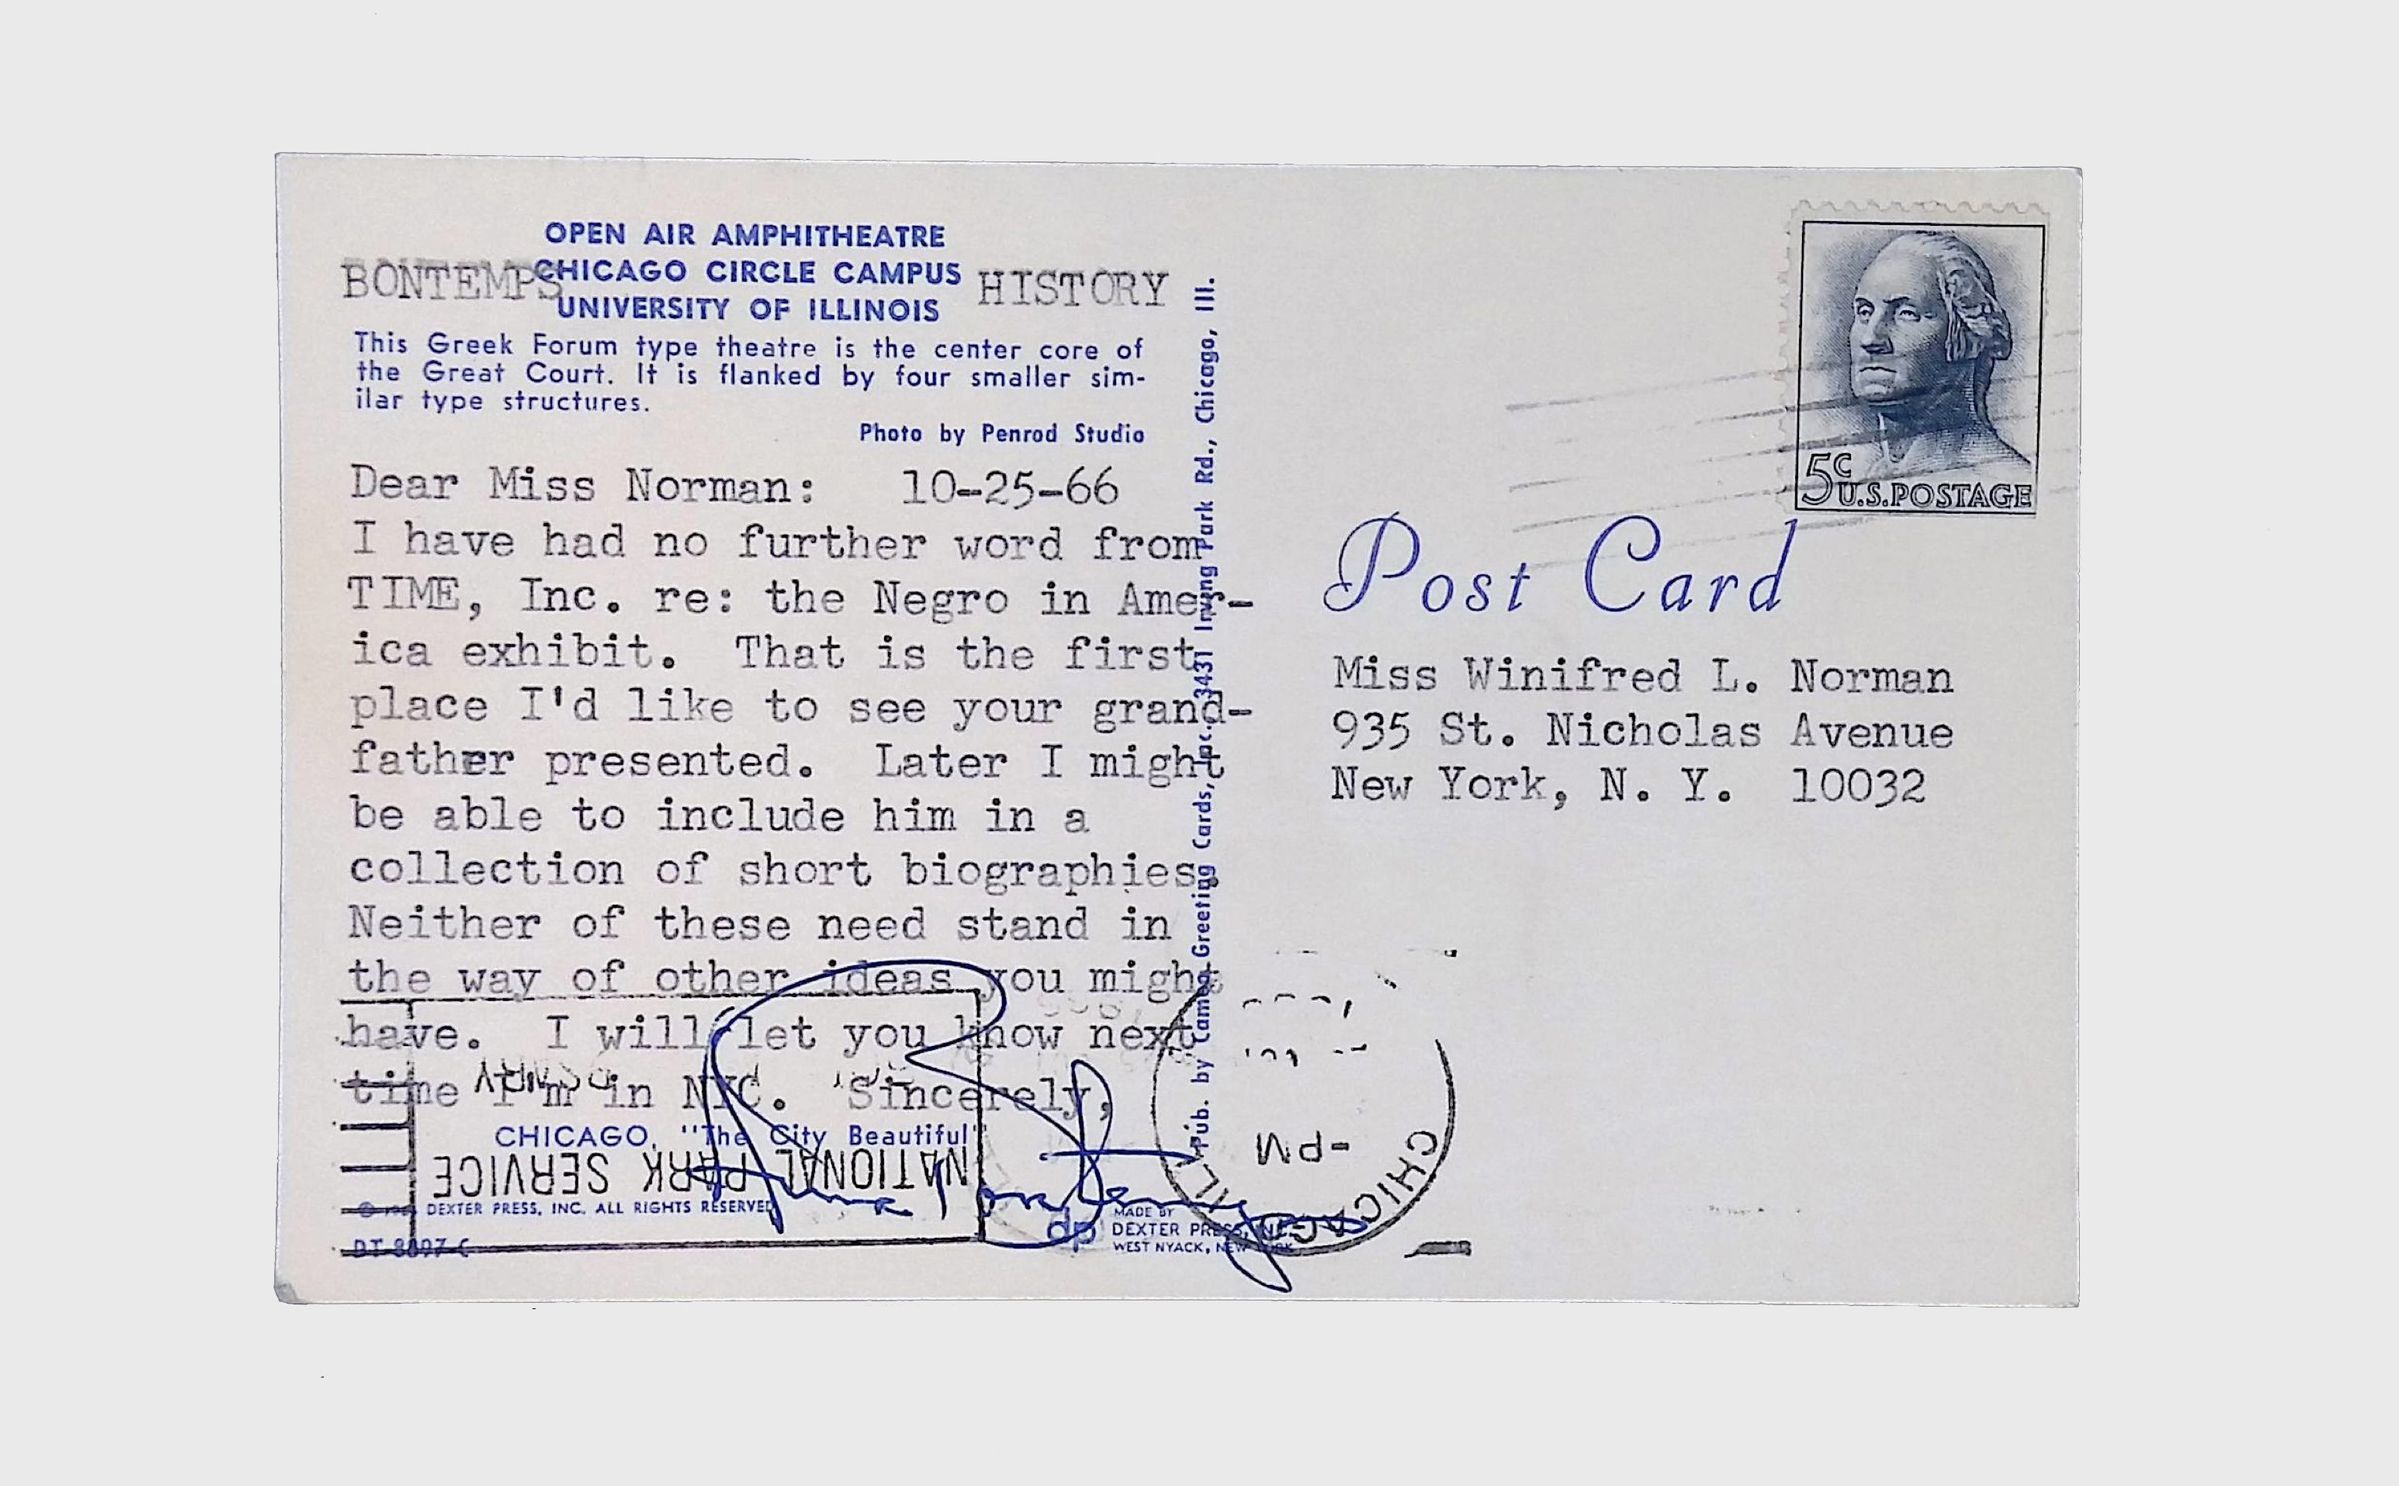 OPEN AIR AMPHITHEATRE
BONTEMPS CHICAGO CIRCLE CAMPUS HISTORY
UNIVERSITY OF ILLINOIS
This Greek Forum type theatre is the center core of
the Great Court. It is flanked by four smaller sim-
ilar type structures.
Photo by Penrod Studio
Dear Miss Norman: 10-25-66
I have had no further word from
TIME, Inc. re: the Negro in Amer-
ica exhibit. That is the first
place I'd like to see your grand-
father presented. Later I might
be able to include him in a
collection of short biographies.
Neither of these need stand in
the way of other ideas you might
have. I will let you know next
time I'm in NYC. Sincerely,
CHICAGO, "The City Beautiful"
NATIONAL PARK SERVICE
Arna Bontemps
DEXTER PRESS, INC. ALL RIGHTS RESERVED
DT-8097-C
dp
MADE BY
DEXTER PRESS, INC.
WEST NYACK, NEW YORK
Pub. by Cameo Greeting Cards, Inc., 3431 Irving Park Rd., Chicago, Ill.
5c
U.S. POSTAGE
Post Card
Miss Winifred L. Norman
935 St. Nicholas Avenue
New York, N. Y. 10032
CHICAGO, ILL
-PM